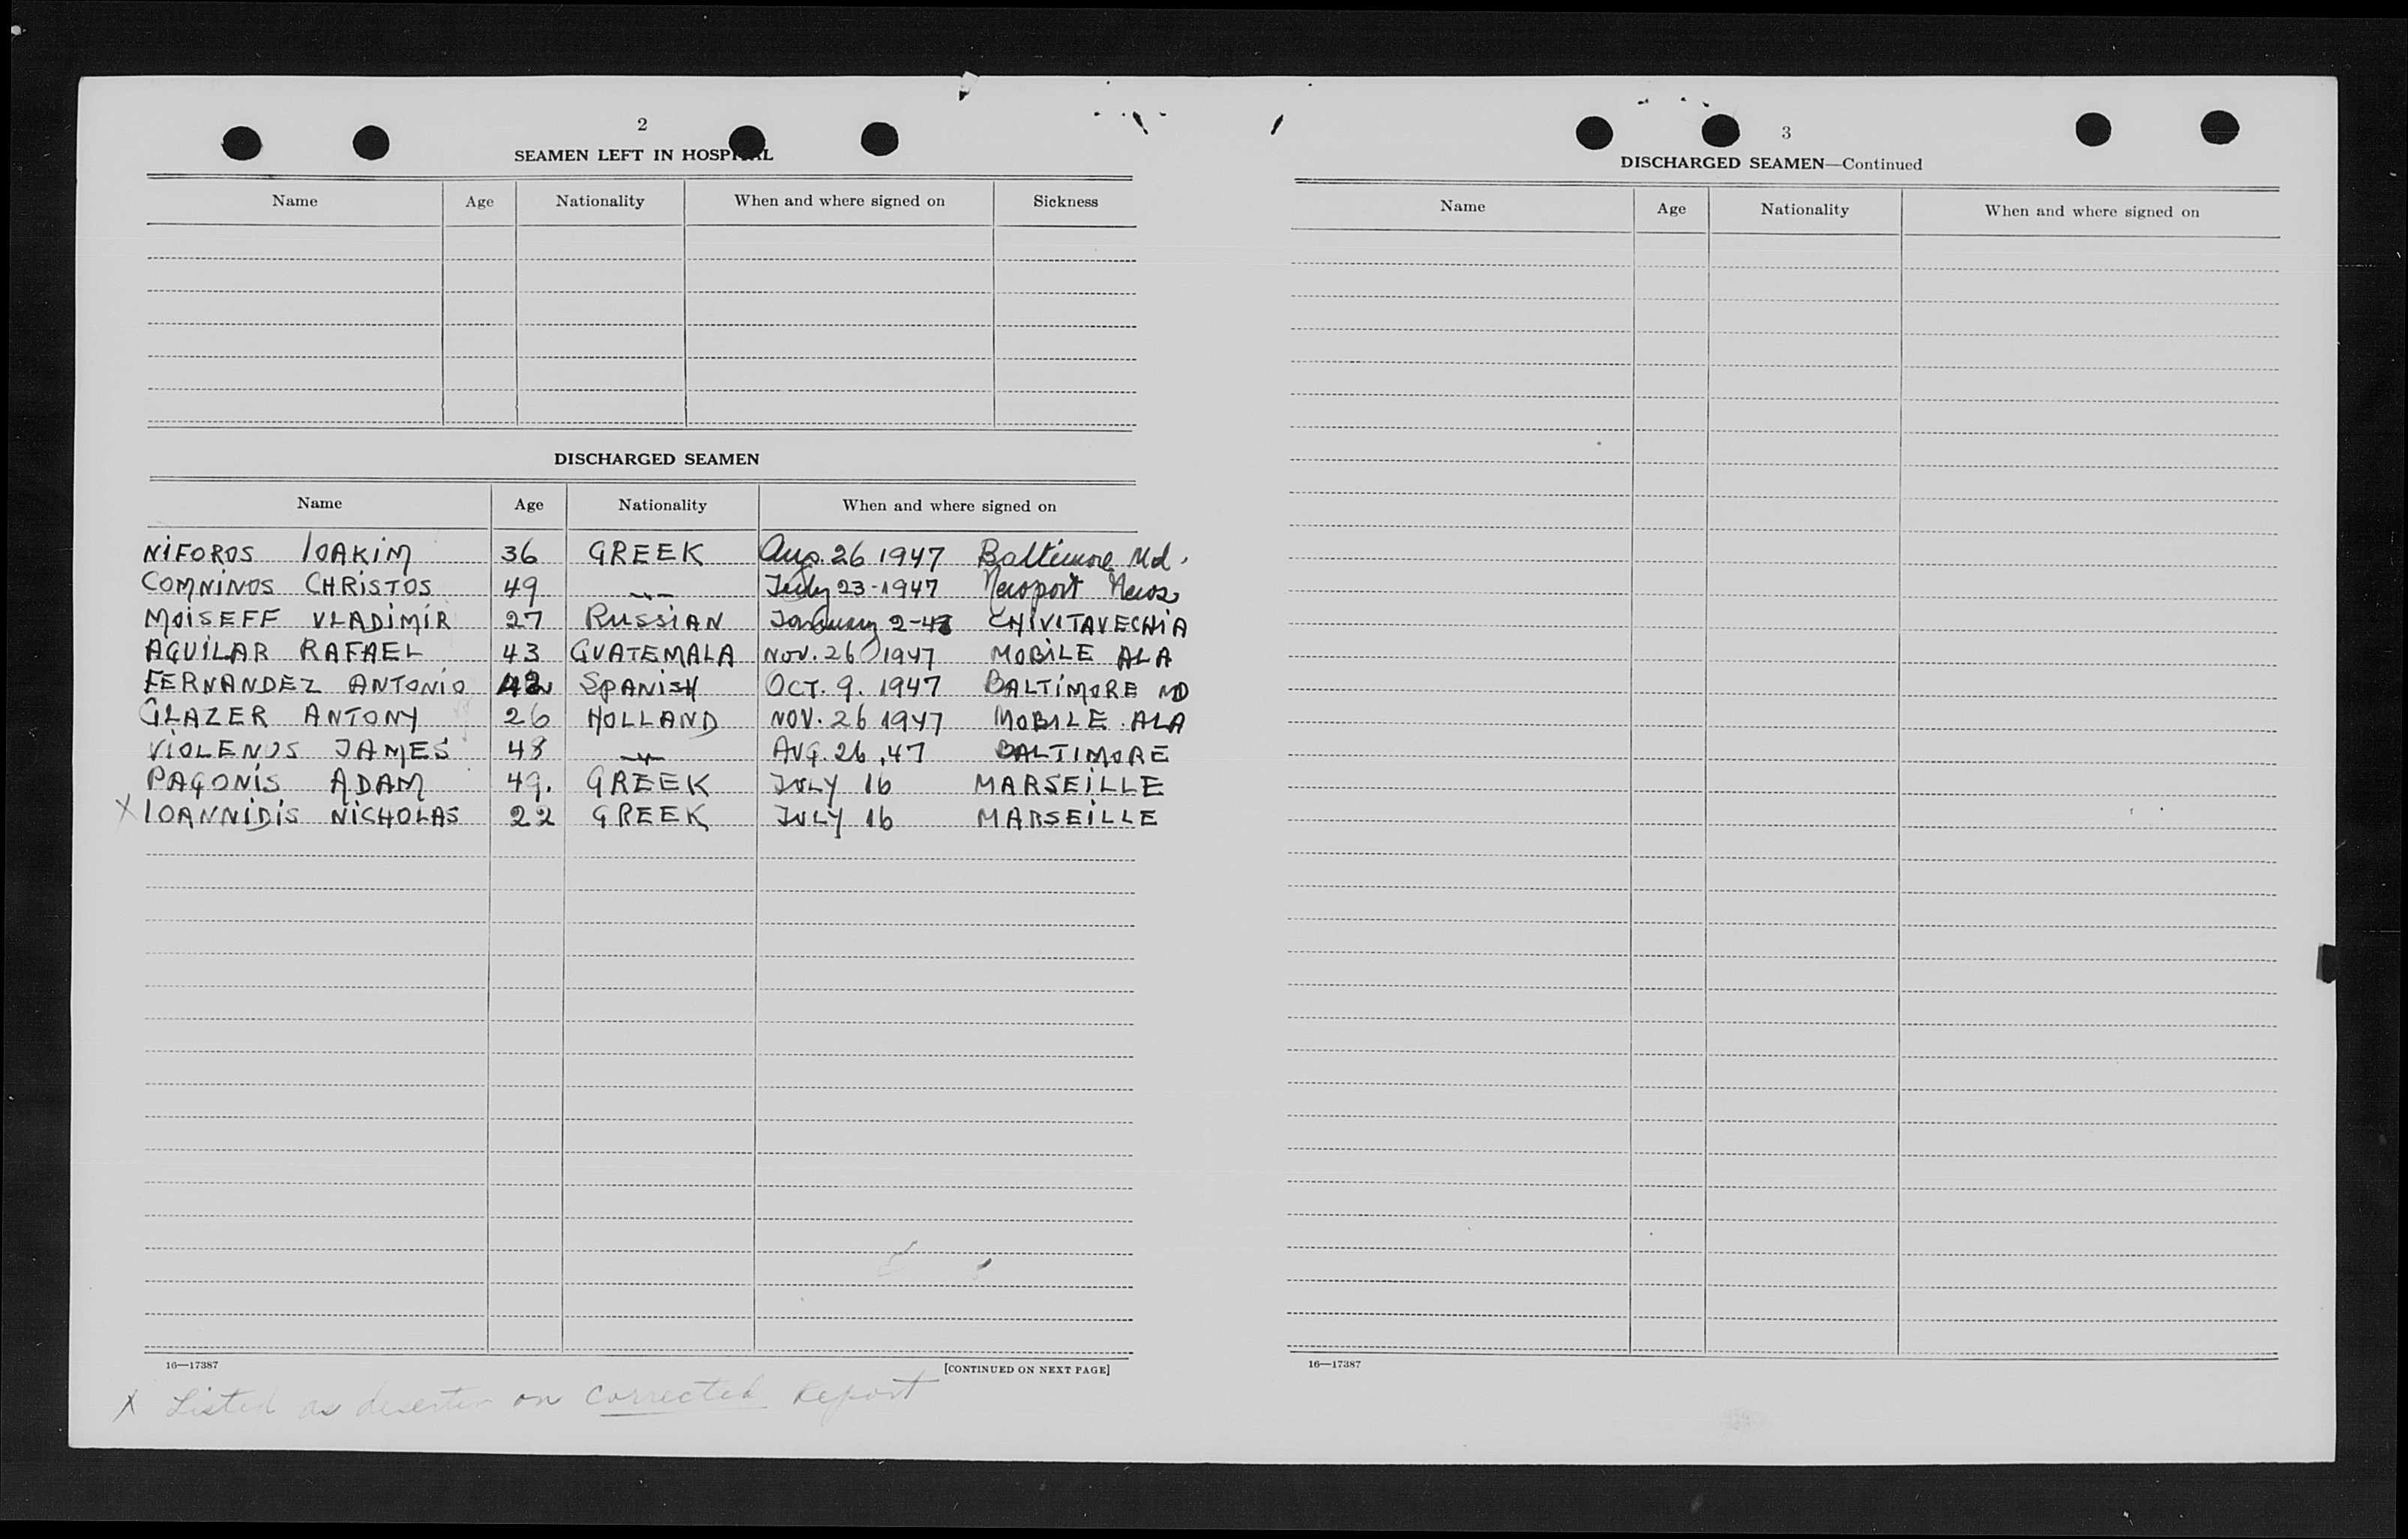 2
SEAMEN LEFT IN HOSPITAL
Name Age Nationality When and where signed on Sickness
DISCHARGED SEAMEN
Name Age Nationality When and where signed on
NIFOROS IOAKIM 36 GREEK Aug. 26 1947 Baltimore Md.
COMNINOS CHRISTOS 49 -"- July 23-1947 Newport News
MOISEFF VLADIMIR 27 RUSSIAN January 2-48 CHIVITAVECHIA
AGUILAR RAFAEL 43 GUATEMALA NOV. 26 1947 MOBILE ALA
FERNANDEZ ANTONIO 42 SPANISH OCT. 9. 1947 BALTIMORE MD
GLAZER ANTONY 26 HOLLAND NOV. 26 1947 MOBILE. ALA
VIOLENOS JAMES 48 -"- AUG. 26, 47 BALTIMORE
PAGONIS ADAM 49. GREEK JULY 16 MARSEILLE
X IOANNIDIS NICHOLAS 22 GREEK JULY 16 MARSEILLE
16—17387 [CONTINUED ON NEXT PAGE]
X Listed as deserter on corrected Report
3
DISCHARGED SEAMEN—Continued
Name Age Nationality When and where signed on
16—17387